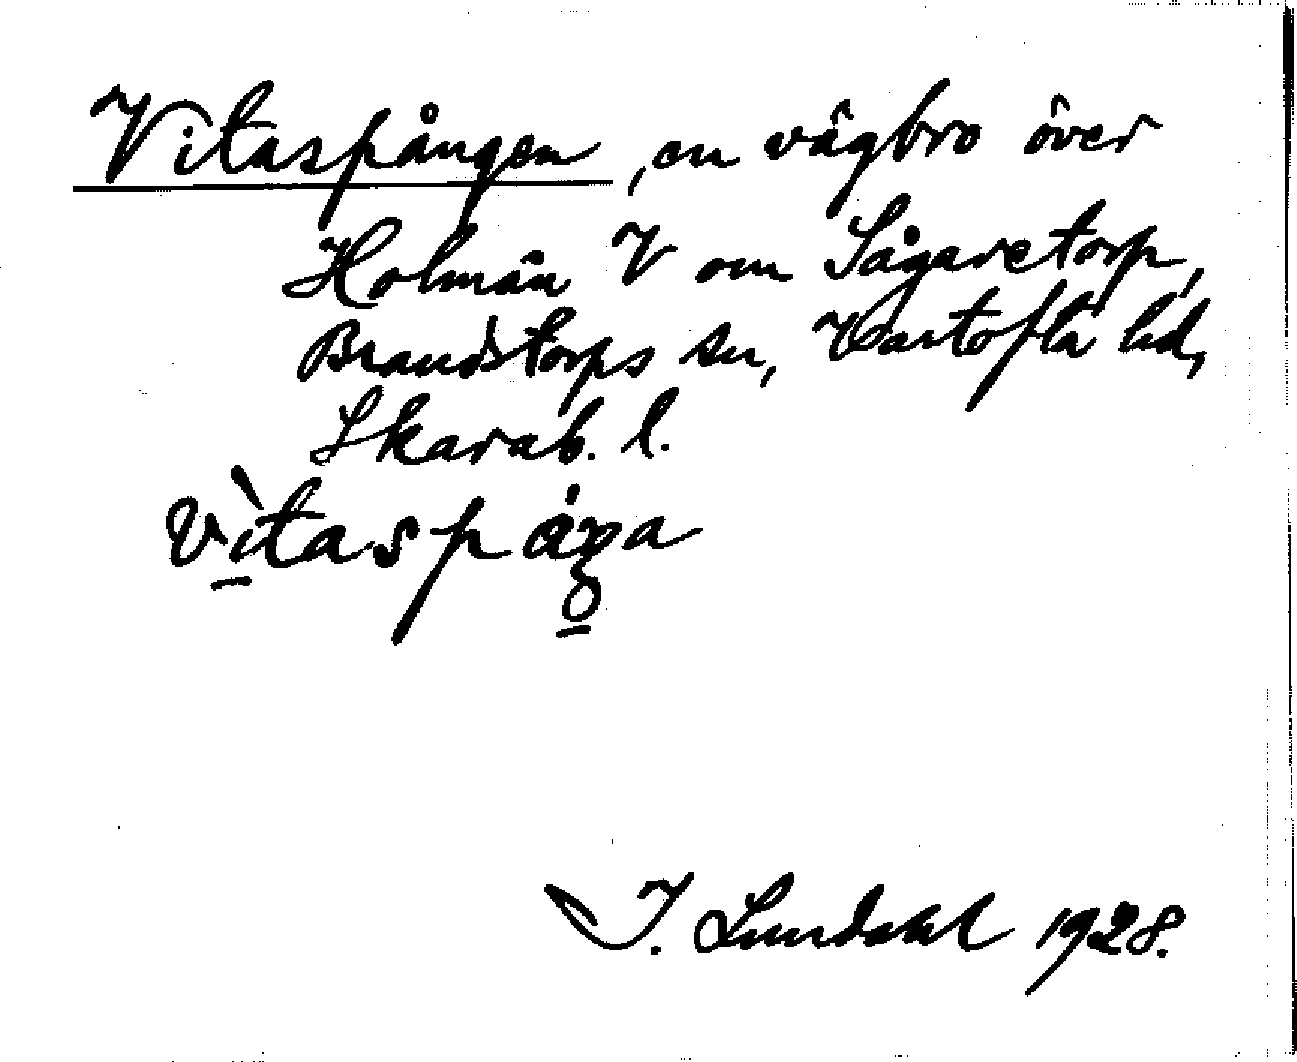 Vitaspången, en vägbro över
Holmån V om Sågaretorp,
Brandstorps sn, Vartofta hd,
Skarab. l.
I. Lundahl 1928.